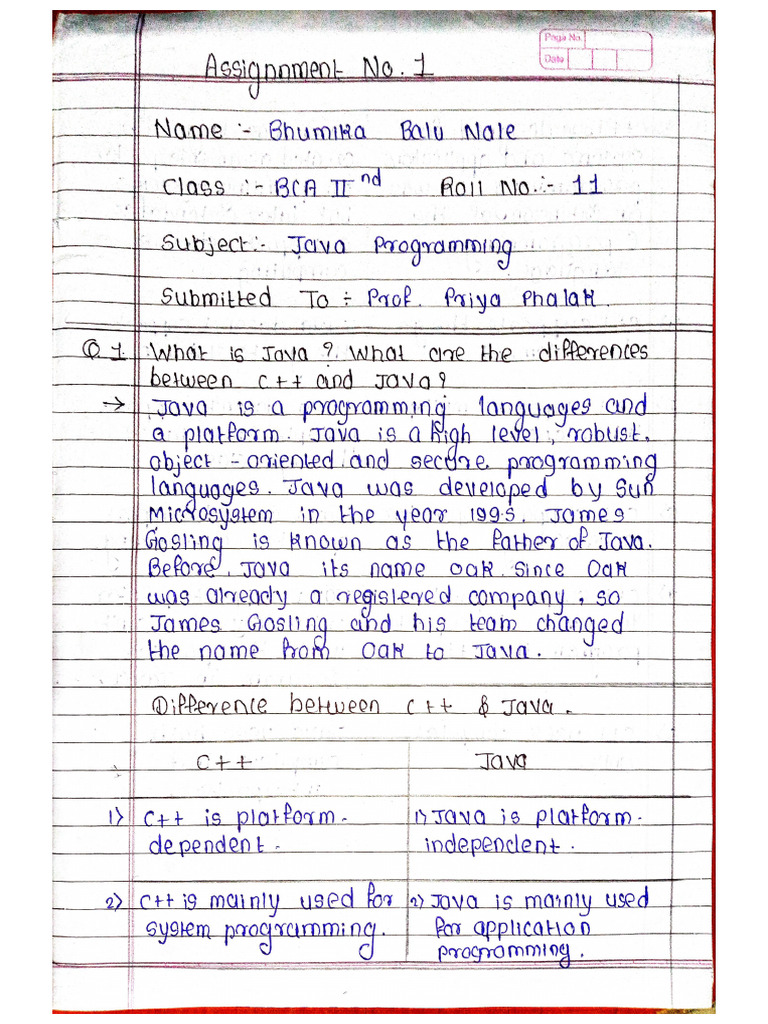 Page No.
Date
Assignnment No. 1
Name :- Bhumika Balu Nale
Class :- BCA II nd Roll No. :- 11
Subject :- Java Programming
Submitted To :- Prof. Priya Phalak.
Q 1 What is Java ? What are the differences
between C++ and Java?
→ Java is a programming languages and
a platform. Java is a high level, robust,
object-oriented and secure programming
languages. Java was developed by Sun
Microsystem in the year 1995. James
Gosling is known as the father of Java.
Before Java its name oak. Since Oak
was already a registered company, so
James Gosling and his team changed
the name from Oak to Java.
Difference between C++ & Java.
C++ Java
1) C++ is platform- 1) Java is platform-
dependent. independent.
2) C++ is mainly used for 2) Java is mainly used
system programming. for application
programming.